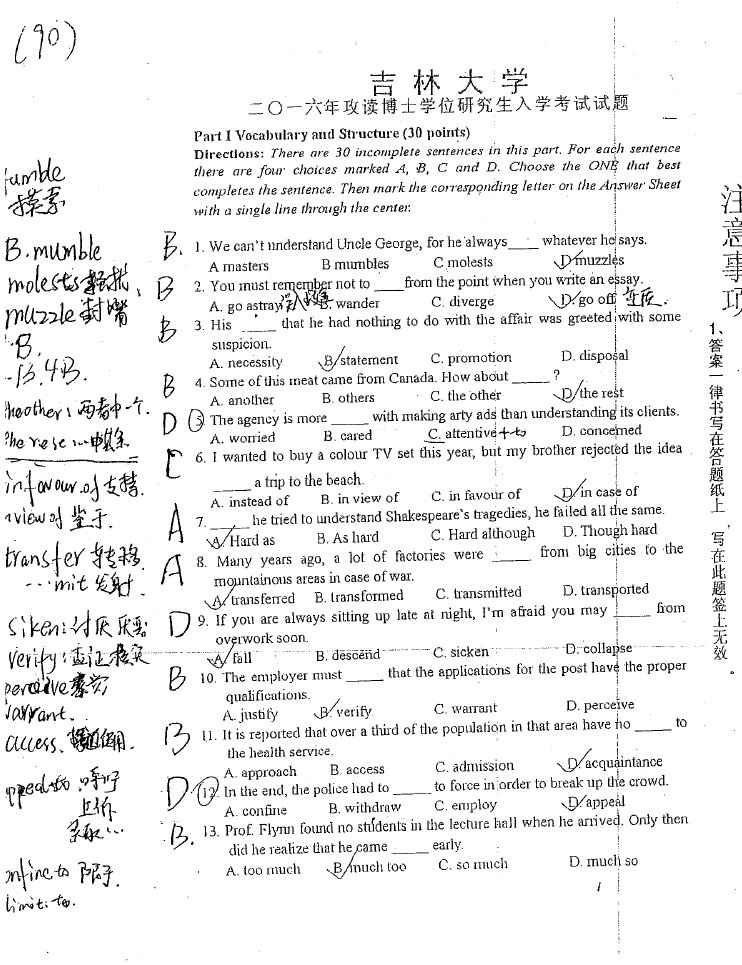 (90)
吉林大学
二〇一六年攻读博士学位研究生入学考试试题
Part I Vocabulary and Structure (30 points)
Directions: There are 30 incomplete sentences in this part. For each sentence
there are four choices marked A, B, C and D. Choose the ONE that best
completes the sentence. Then mark the corresponding letter on the Answer Sheet
with a single line through the center.
B. 1. We can't understand Uncle George, for he always____ whatever he says.
A masters B mumbles C molests D muzzles
B 2. You must remember not to ____from the point when you write an essay.
A. go astray B. wander C. diverge D. go off
B 3. His _____ that he had nothing to do with the affair was greeted with some
suspicion.
A. necessity B. statement C. promotion D. disposal
B 4. Some of this meat came from Canada. How about ______?
A. another B. others C. the other D. the rest
D 5. The agency is more _____ with making arty ads than understanding its clients.
A. worried B. cared C. attentive +to D. concerned
C 6. I wanted to buy a colour TV set this year, but my brother rejected the idea
_____ a trip to the beach.
A. instead of B. in view of C. in favour of D. in case of
A 7. _____ he tried to understand Shakespeare's tragedies, he failed all the same.
A. Hard as B. As hard C. Hard although D. Though hard
A 8. Many years ago, a lot of factories were _____ from big cities to the
mountainous areas in case of war.
A. transferred B. transformed C. transmitted D. transported
D 9. If you are always sitting up late at night, I'm afraid you may _____ from
overwork soon.
A. fall B. descend C. sicken D. collapse
B 10. The employer must _____ that the applications for the post have the proper
qualifications.
A. justify B. verify C. warrant D. perceive
B 11. It is reported that over a third of the population in that area have no _____ to
the health service.
A. approach B. access C. admission D. acquaintance
D 12. In the end, the police had to _____ to force in order to break up the crowd.
A. confine B. withdraw C. employ D. appeal
B. 13. Prof. Flynn found no students in the lecture hall when he arrived. Only then
did he realize that he came _____ early.
A. too much B. much too C. so much D. much so
1
umble
摸索
B. mumble
molests
muzzle 封嘴
B.
13. 4B.
the other: 两者中一个.
in favour of 支持.
view of 鉴于.
transfer 转移
...mit 发射.
siken: 讨厌
verify: 查证核实
perceive
warrant.
access.
上诉
confine to 限于.
limit to.
注意事项
1、答案一律书写在答题纸上 写在此题签上无效。